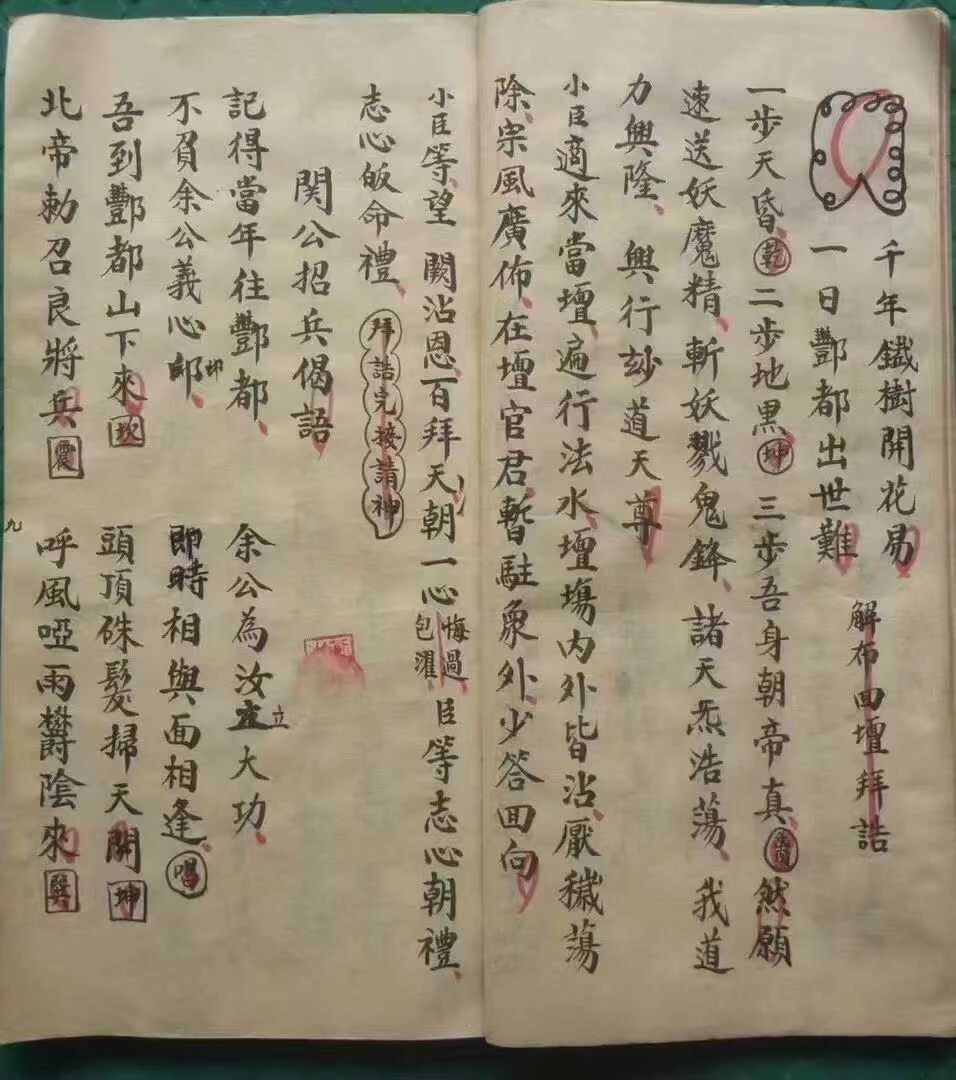 千年鐵樹開花易
一日酆都出世難
解布回壇拜誥
一步天昏乾二步地黑坤三步吾身朝帝真 然願
速送妖魔精、斬妖戮鬼鋒、諸天炁浩蕩、我道
力興隆、興行玅道天尊
小臣適來當壇、遍行法水、壇塲内外皆沾、厭穢蕩
除、宗風廣佈、在壇官君、暫駐象外、少答回向
小臣等、望 闕沾恩、百拜天朝一心 悔過 包濯 臣等志心朝禮、
志心皈命禮、 拜誥完接請神
関公招兵偈語
記得當年往酆都、 余公為汝立大功、
不負余公義心 卯 即時相與面相逢、唱
吾到酆都山下來坎 頭頂硃髮掃天開坤
北帝勅召良將兵震 呼風啞雨欝陰來巽
九